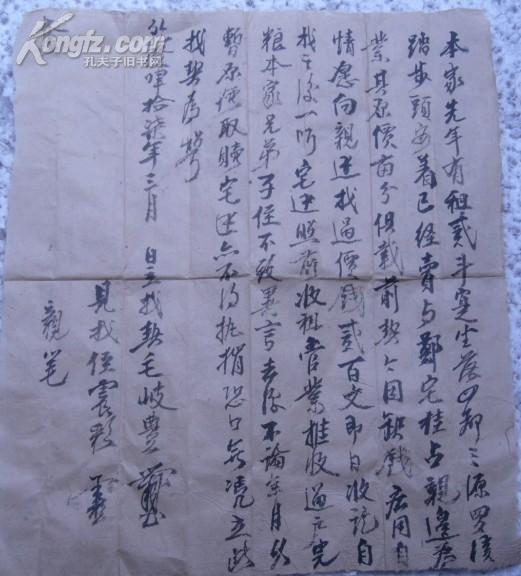 Kongfz.com
孔夫子旧书网
本家先年有租贰斗寔坐落四都三源
踏步頭安着已经賣与鄭宅桂占親邊為
業其原價亩分俱载前契今因缺錢应用自
情愿向親迁找過價錢贰百文即日收訖自
找之後一听宅迁照前收租管業推收過户完
粮本家兄弟子侄不敢異言去後不論年月久
暫原錢取贖宅迁亦不得执揹恐口無凭立此
找契為照
拾柒年三月 日立找契毛岐豊
見找侄震彩
親笔